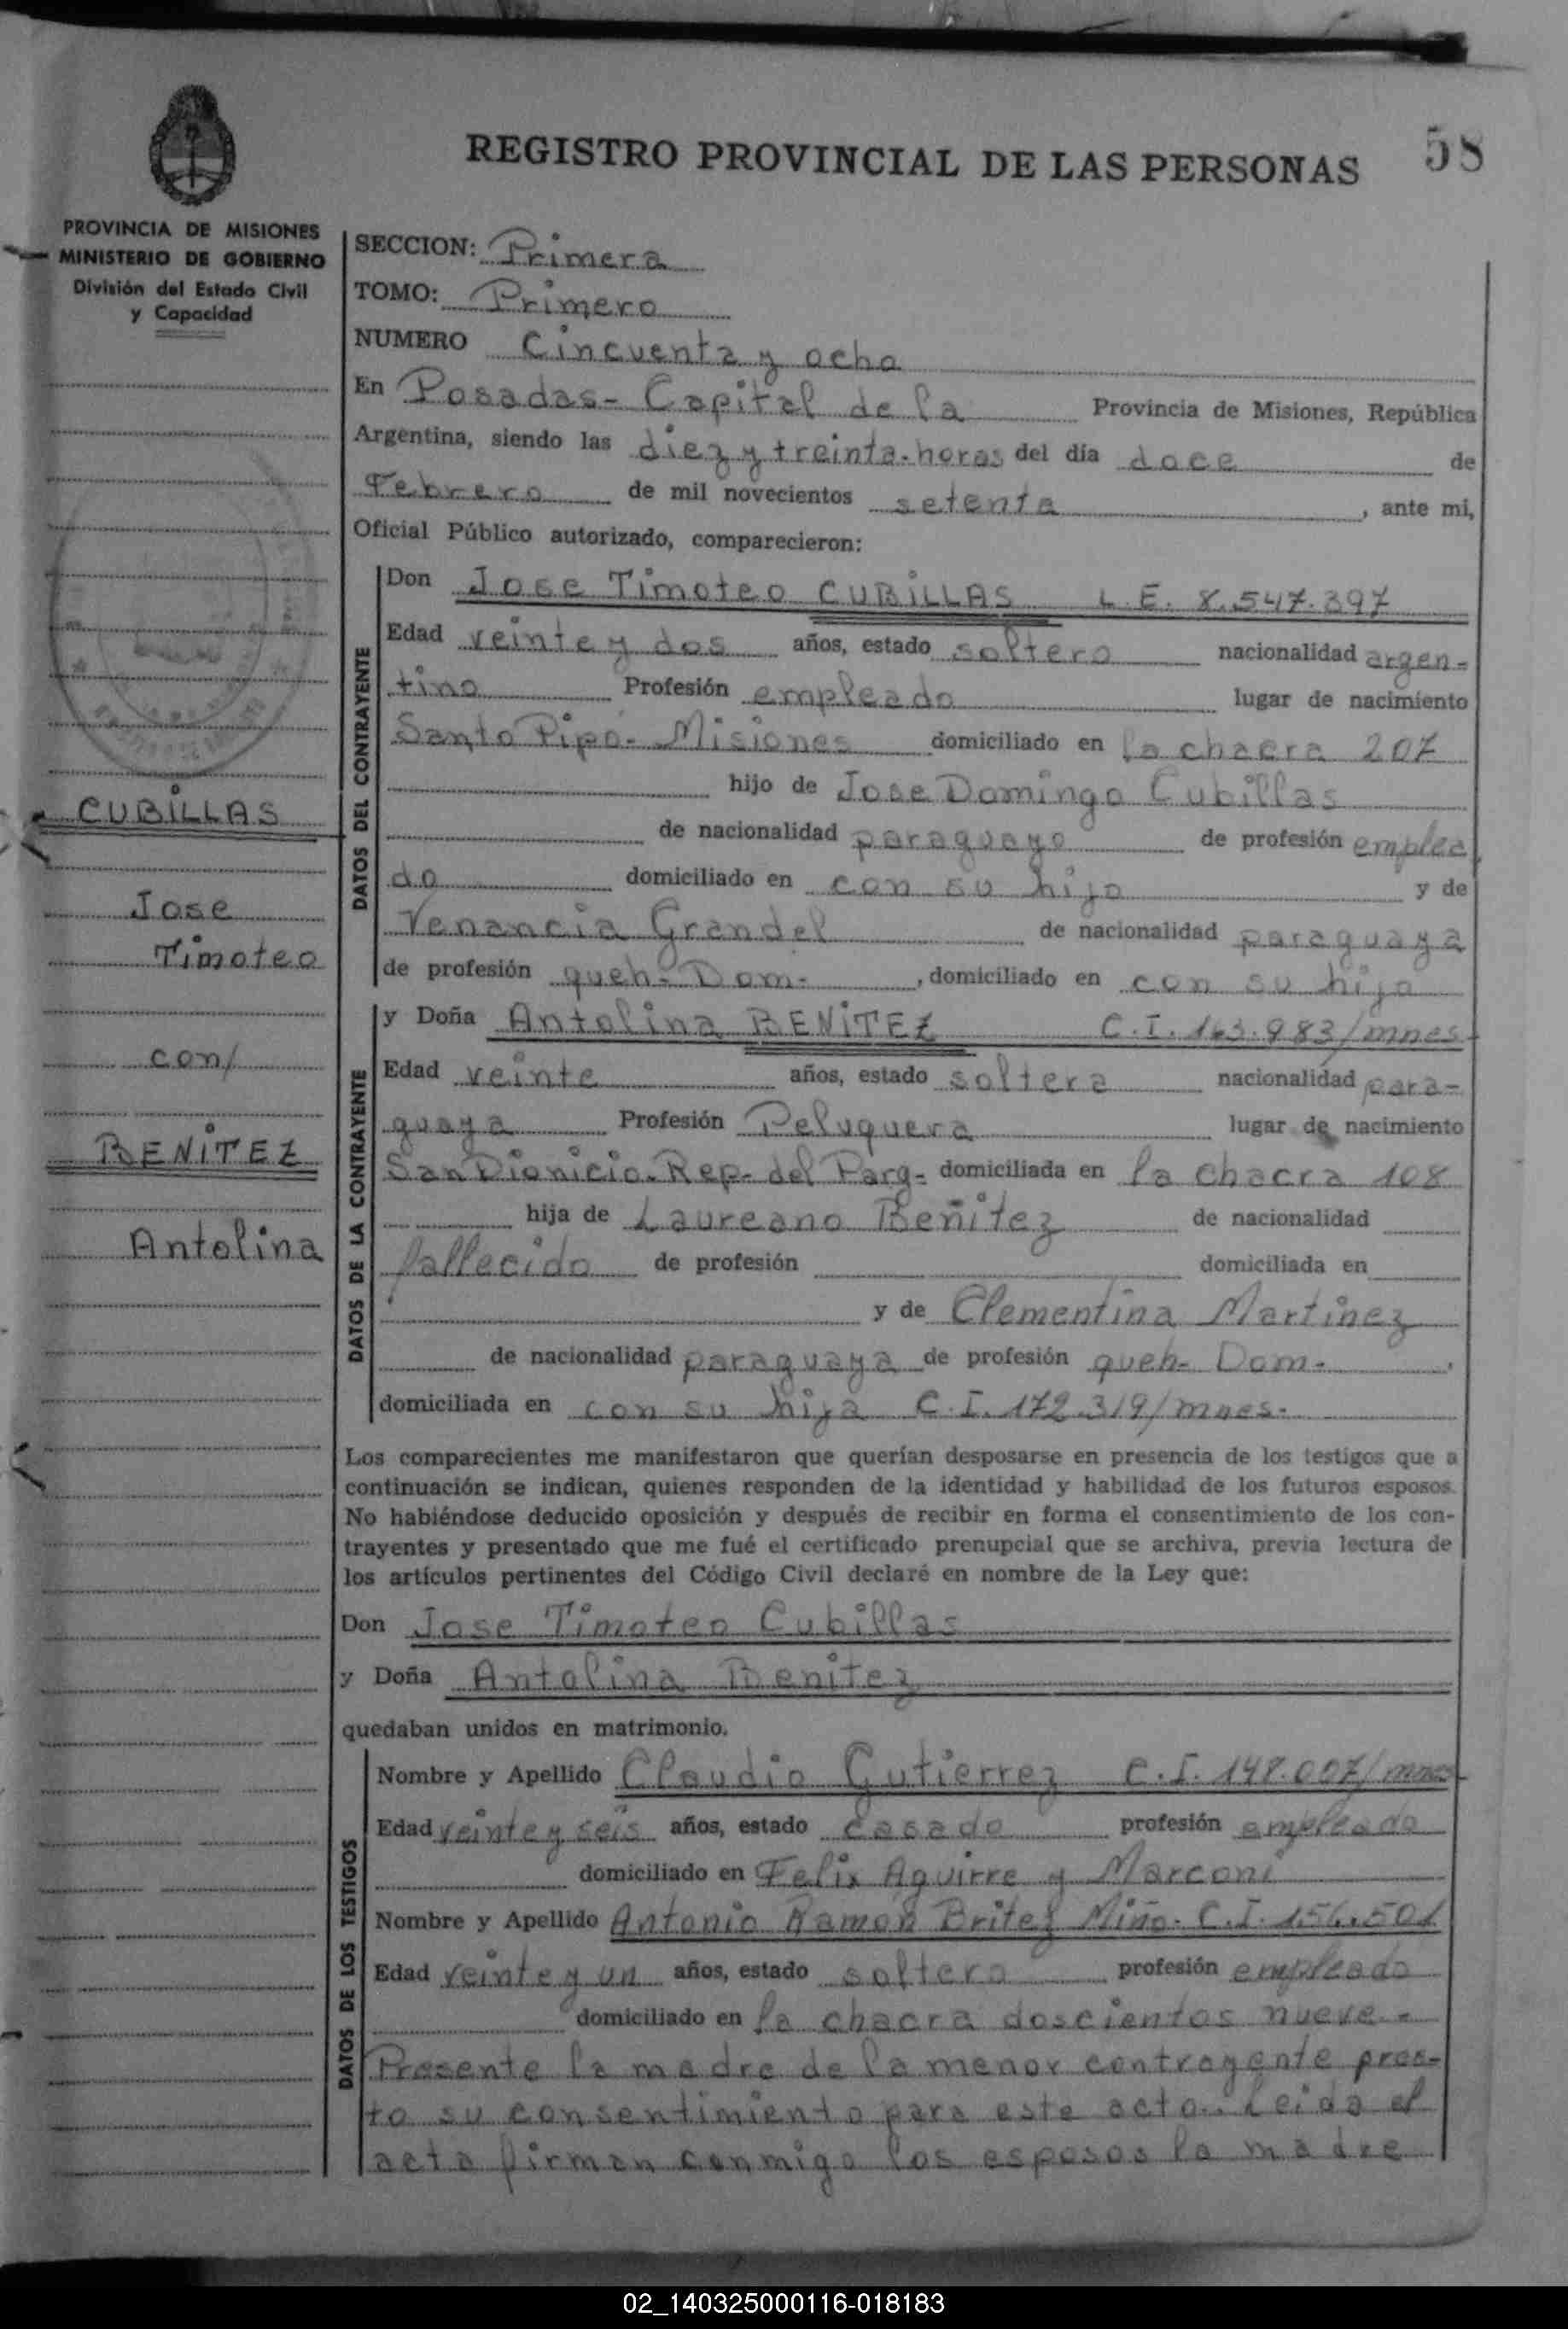 REGISTRO PROVINCIAL DE LAS PERSONAS 58
PROVINCIA DE MISIONES
MINISTERIO DE GOBIERNO
División del Estado Civil
y Capacidad
CUBILLAS
Jose
Timoteo
con/
BENITEZ
Antolina
SECCION: Primera
TOMO: Primero
NUMERO Cincuenta y ocho
En Posadas- Capital de la Provincia de Misiones, República
Argentina, siendo las diez y treinta.horas del día doce de
Febrero de mil novecientos setenta, ante mi,
Oficial Público autorizado, comparecieron:
DATOS DEL CONTRAYENTE
Don Jose Timoteo CUBILLAS L.E. 8.547.397
Edad veinte y dos años, estado soltero nacionalidad argen-
tino Profesión empleado lugar de nacimiento
Santo Pipó- Misiones domiciliado en la chacra 207
hijo de Jose Domingo Cubillas
de nacionalidad paraguayo de profesión emplea
do domiciliado en con su hijo y de
Venancia Grandel de nacionalidad paraguaya
de profesión queh- Dom-, domiciliado en con su hijo
DATOS DE LA CONTRAYENTE
y Doña Antolina BENITEZ C.I. 163.983/mnes-
Edad veinte años, estado soltera nacionalidad para-
guaya Profesión Peluquera lugar de nacimiento
San Dionicio.Rep- del Parg- domiciliada en la chacra 108
hija de Laureano Beñitez de nacionalidad
fallecido de profesión domiciliada en
y de Clementina Martinez
de nacionalidad paraguaya de profesión queh- Dom-,
domiciliada en con su hija C.I. 172.319/mnes-
Los comparecientes me manifestaron que querían desposarse en presencia de los testigos que a
continuación se indican, quienes responden de la identidad y habilidad de los futuros esposos.
No habiéndose deducido oposición y después de recibir en forma el consentimiento de los con-
trayentes y presentado que me fué el certificado prenupcial que se archiva, previa lectura de
los artículos pertinentes del Código Civil declaré en nombre de la Ley que:
Don Jose Timoteo Cubillas
y Doña Antolina Benitez
quedaban unidos en matrimonio.
DATOS DE LOS TESTIGOS
Nombre y Apellido Claudio Gutierrez C.I. 148.007/mnes-
Edad veinte y seis años, estado casado profesión empleado
domiciliado en Felix Aguirre y Marconi
Nombre y Apellido Antonio Ramon Britez Miño- C.I. 156.501
Edad veinte y un años, estado soltero profesión empleado
domiciliado en la chacra doscientos nueve-
Presente la madre de la menor contrayente pres-
to su consentimiento para este acto.. Leida el
acta firman conmigo los esposos la madre
02_140325000116-018183